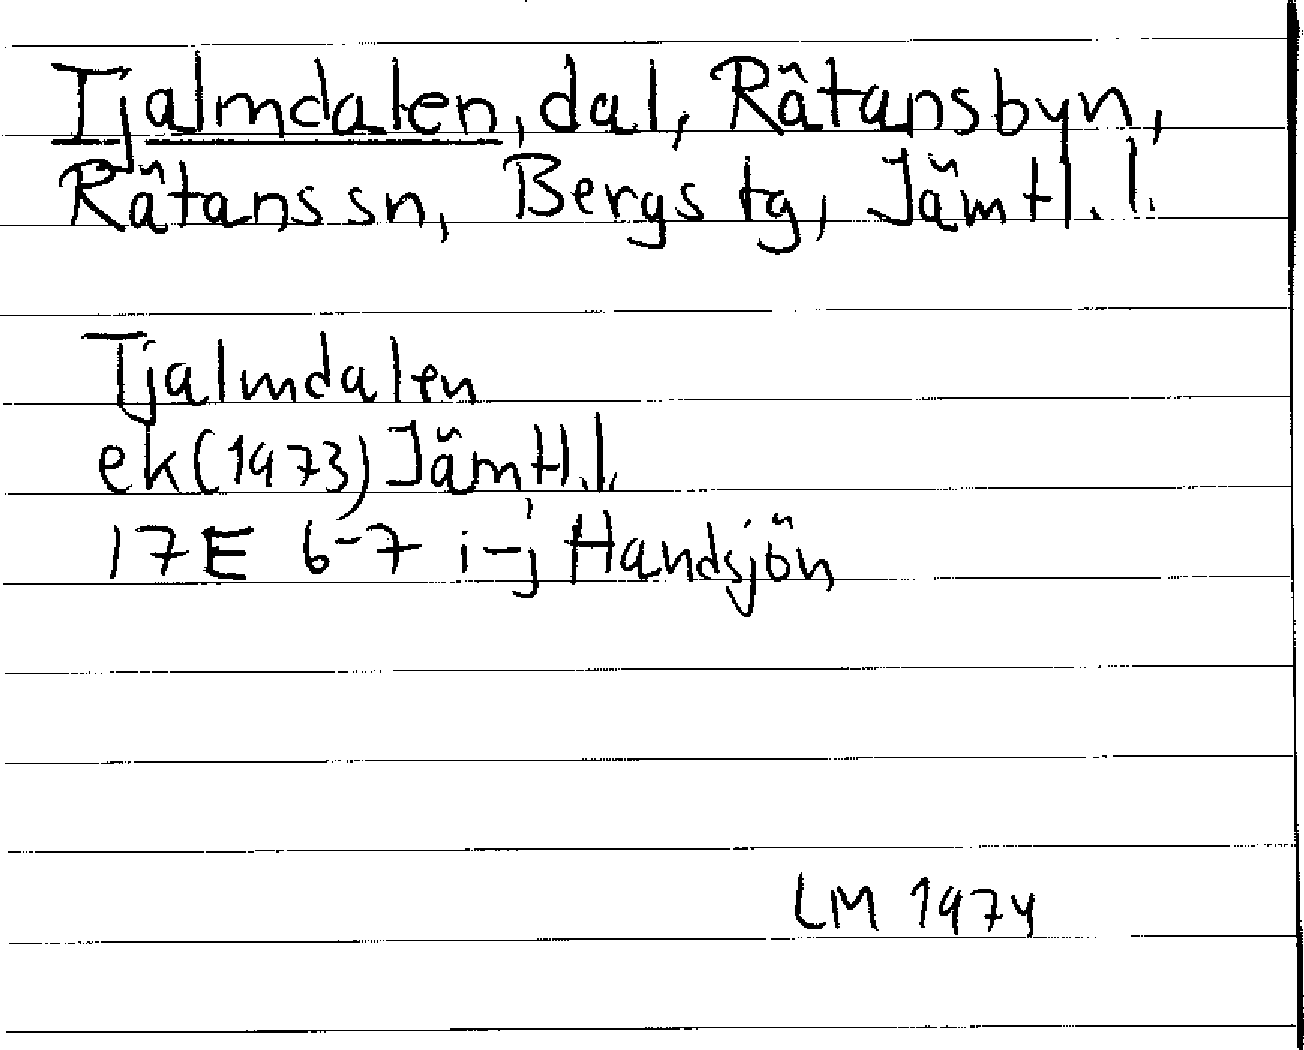 Tjalmdalen, dal, Råtansbyn,
Råtans sn, Bergs tg, Jämtl. l.
Tjalmdalen
ek (1973) Jämtl. l.
17E 6-7 i-j Handsjön
LM 1974